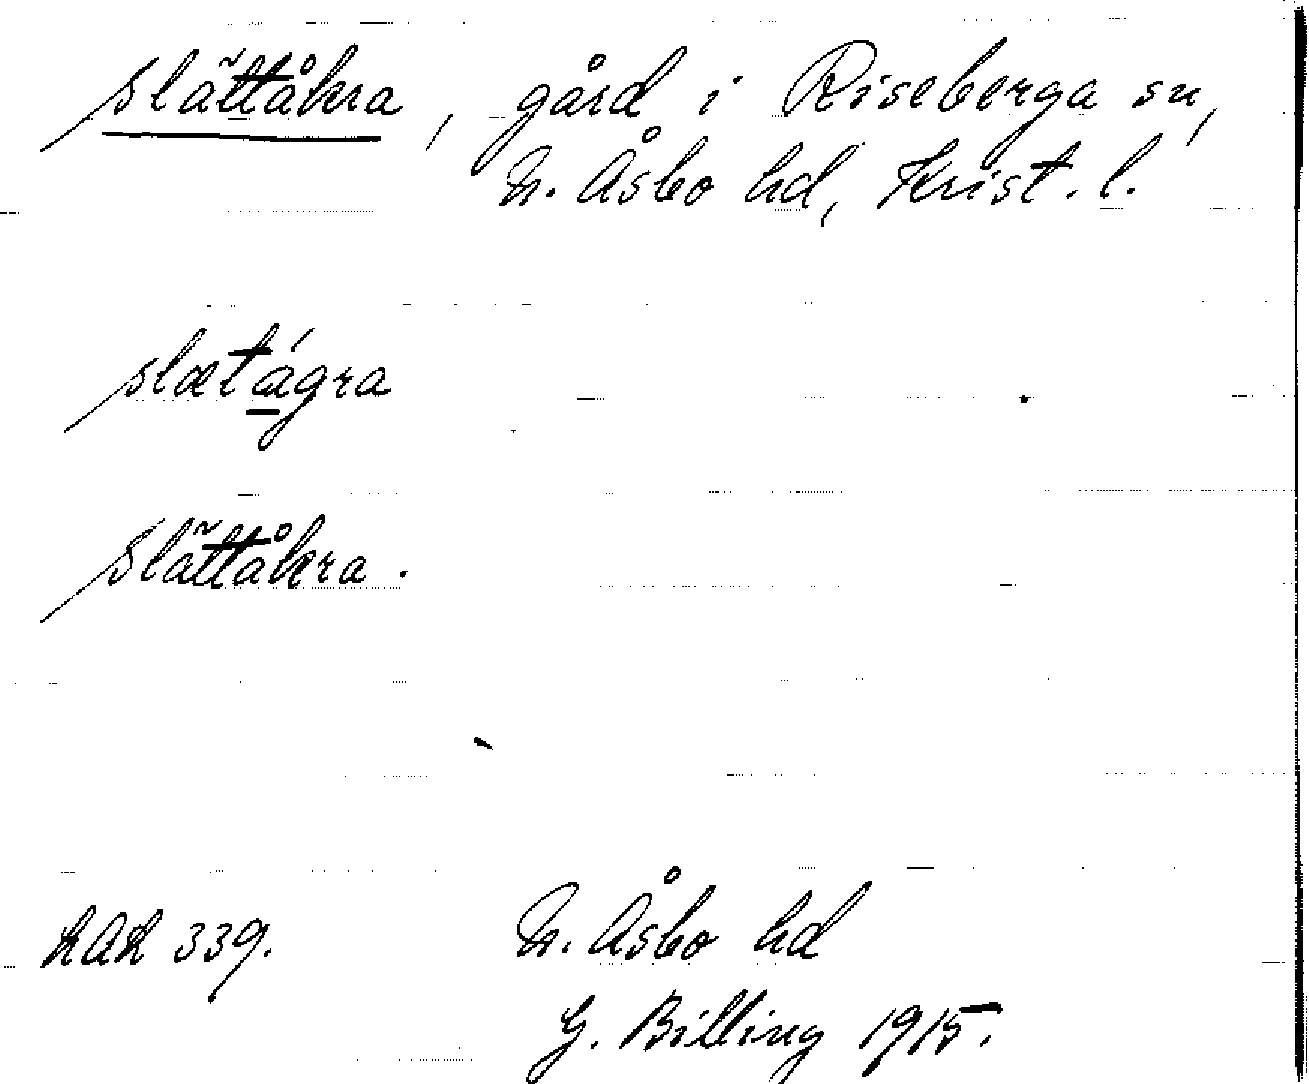 Slättåkra, gård i Riseberga sn,
N. Åsbo hd, Krist. l.
slætágra
Slättåkra.
N. Åsbo hd
G. Billing 1915.